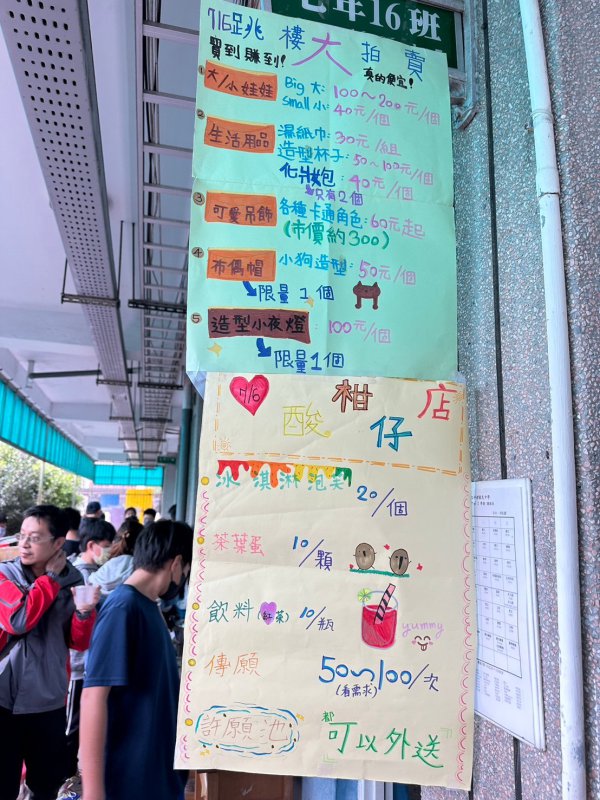 七年16班
716跳樓大拍賣
買到賺到!
真的便宜!
1 大/小娃娃 Big 大: 100～200元/個
Small 小: 40元/個
2 生活用品 濕紙巾: 30元/組
造型杯子: 50～100元/個
化妝包: 40元/個
只有2個
3 可愛吊飾 各種卡通角色: 60元起
(市價約300)
4 布偶帽 小狗造型: 50元/個
限量1個
5 造型小夜燈: 100元/個
限量1個
716 酸柑仔店
冰淇淋泡芙 20/個
茶葉蛋 10/顆
飲料(紅茶) 10/瓶
yummy
傳願 50～100/次
(看需求)
許願池 都可以外送